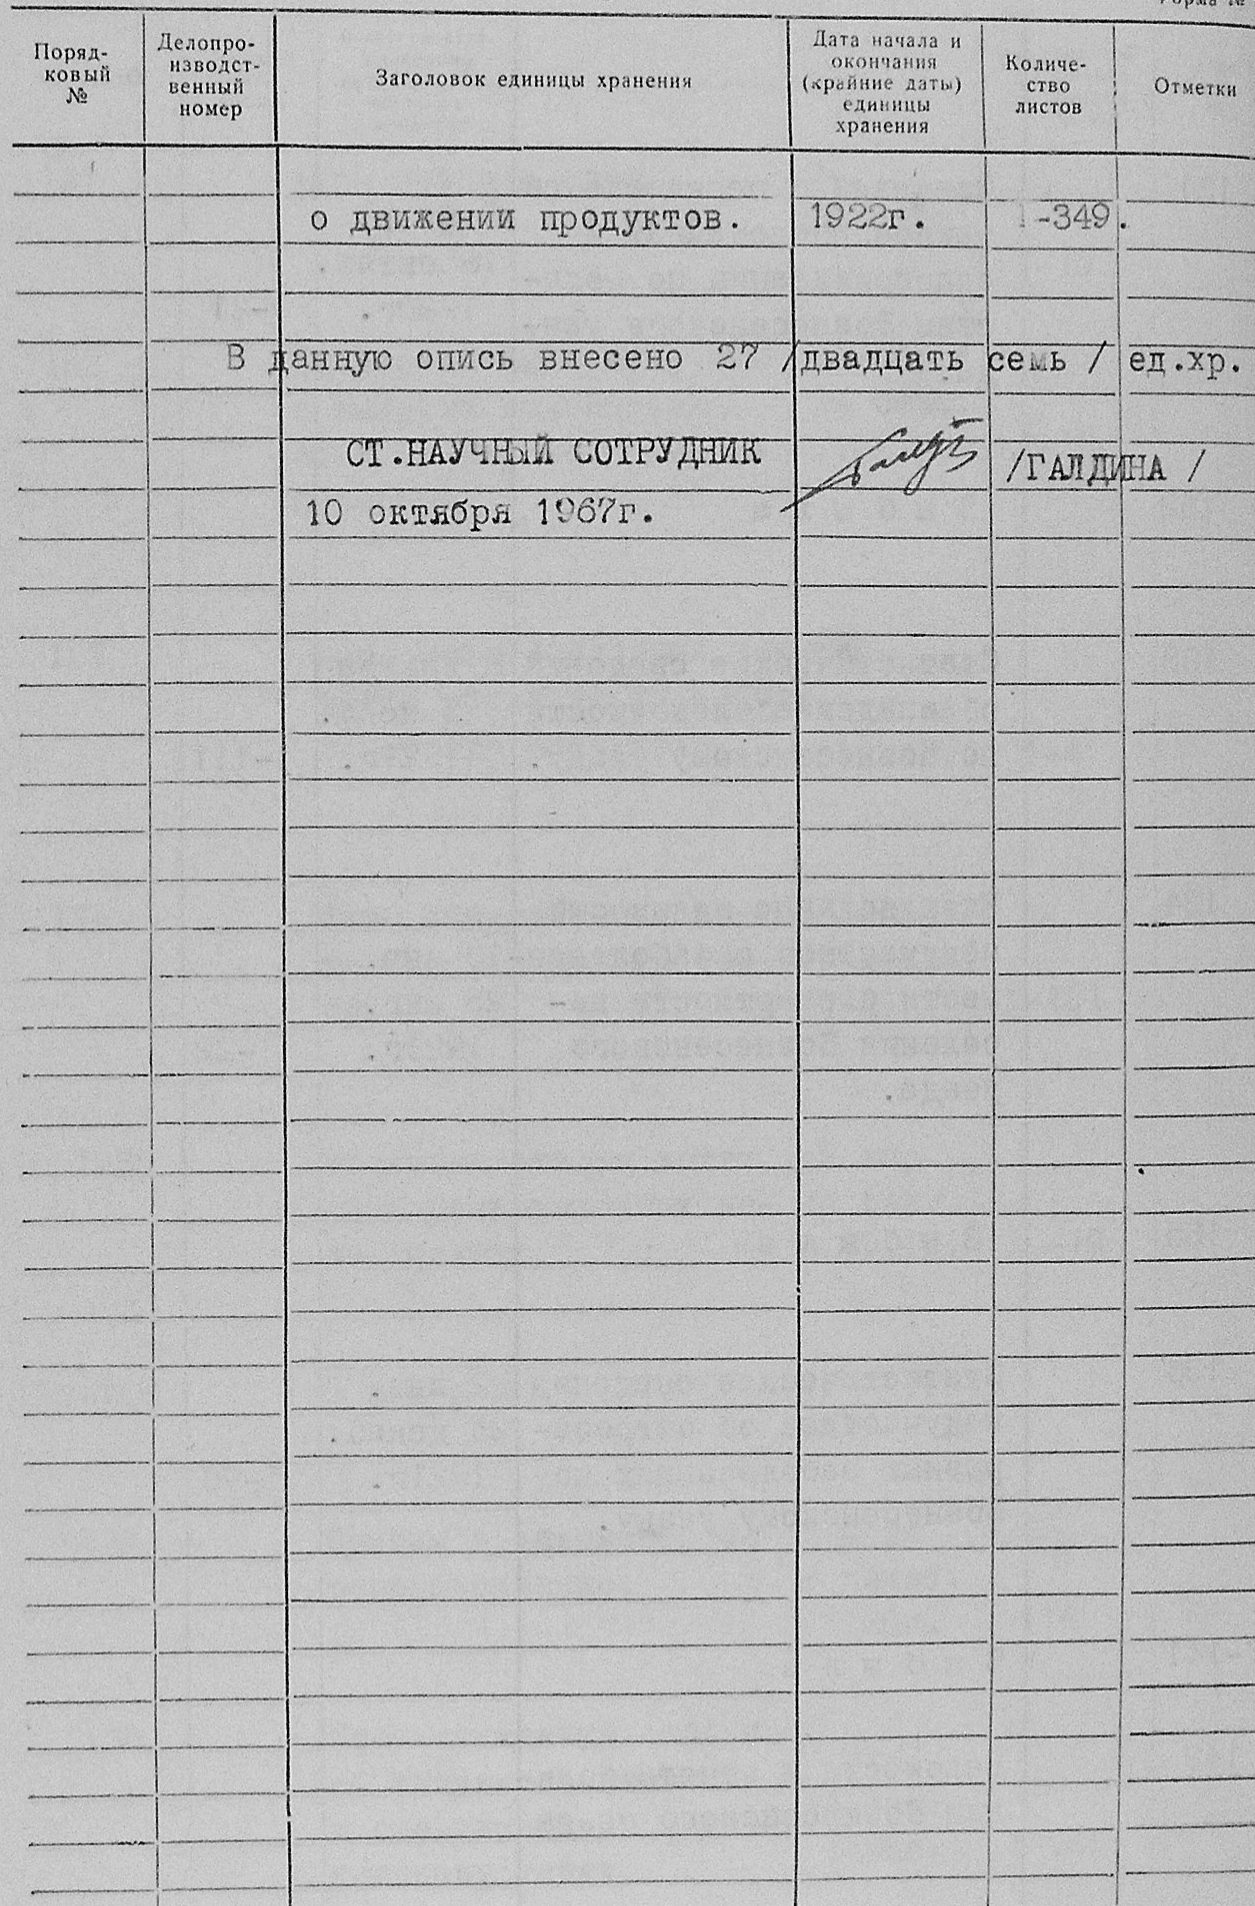 Форма №
Поряд-
ковый
№
Делопро-
изводст-
венный
номер
Заголовок единицы хранения
Дата начала и
окончания
(крайние даты)
единицы
хранения
Количе-
ство
листов
Отметки
о движении продуктов. 1922г. 1-349.
В данную опись внесено 27 /двадцать семь / ед.хр.
СТ.НАУЧНЫЙ СОТРУДНИК /ГАЛДИНА /
10 октября 1967г.